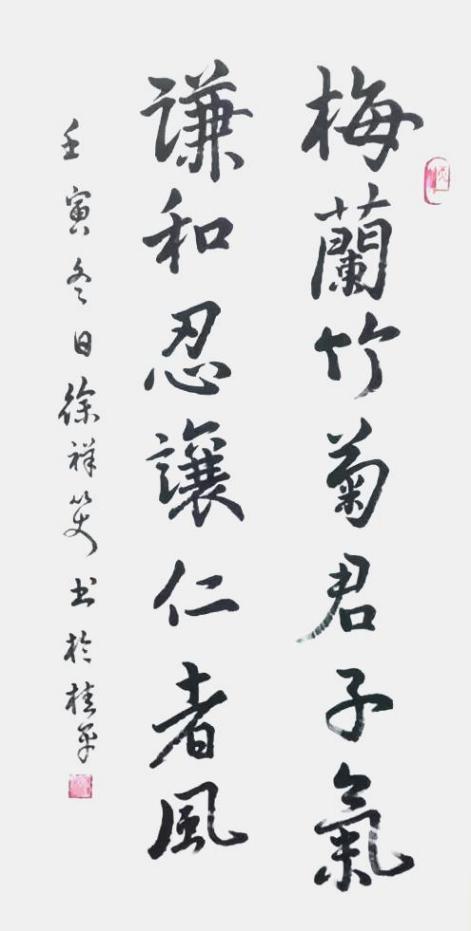 梅蘭竹菊君子氣
謙和忍讓仁者風
壬寅冬日徐祥笑书於桂平